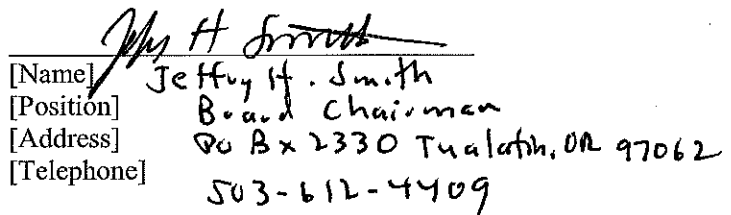 Jeffry H Smith
[Name] Jeffry H. Smith
[Position] Board Chairman
[Address] PO Bx 2330 Tualatin, OR 97062
[Telephone] 503-612-4409